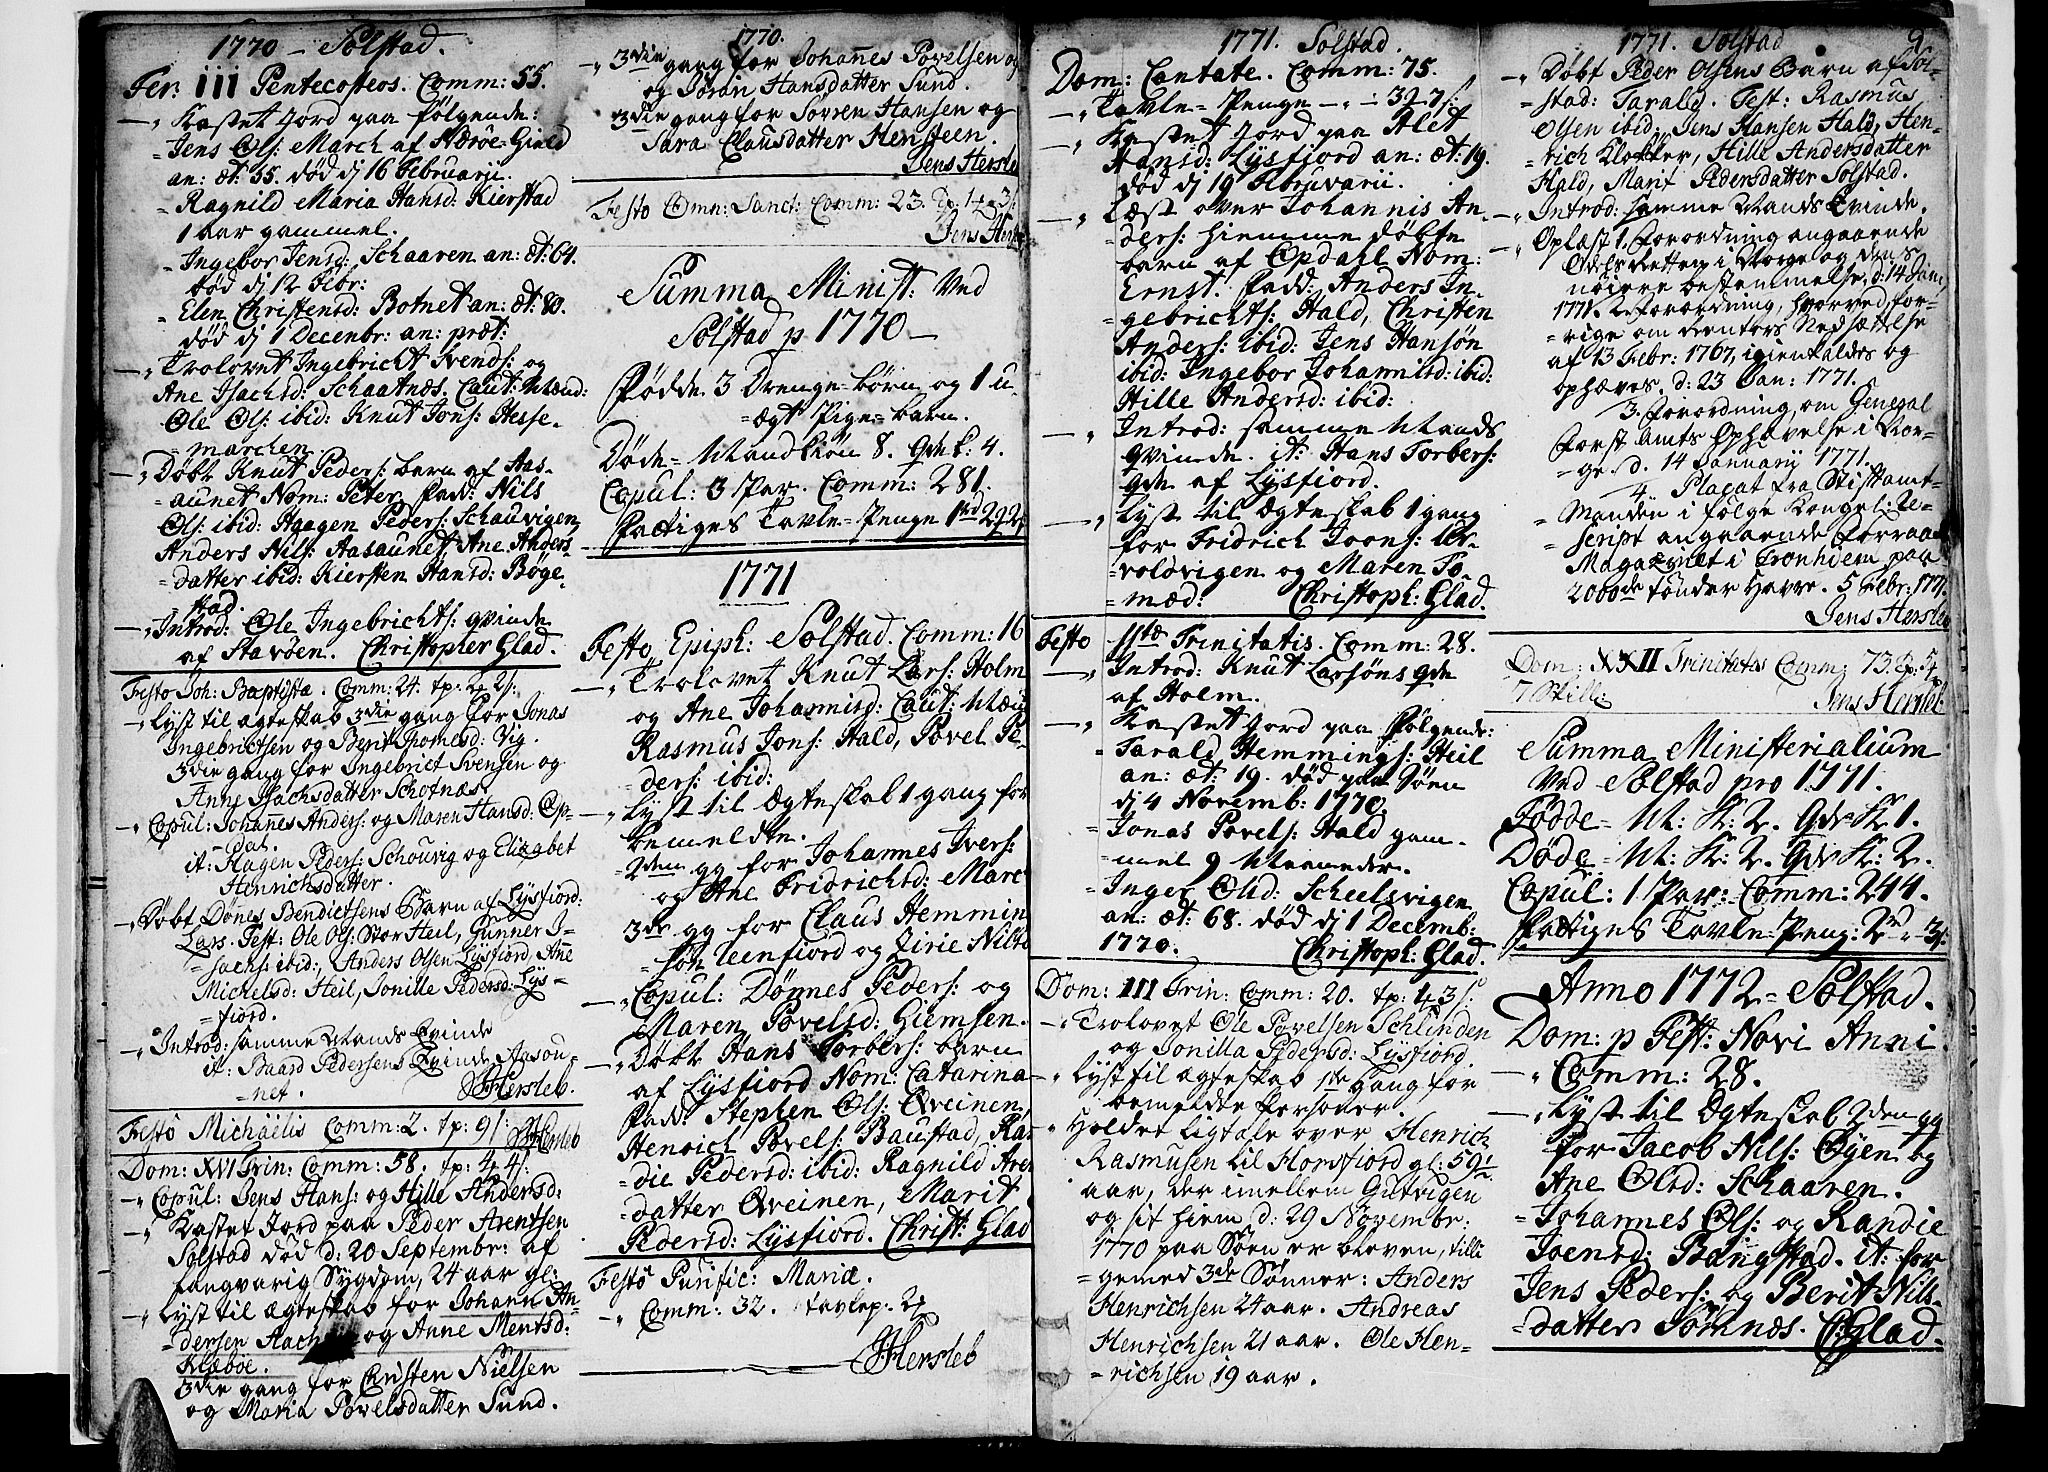 1770 – Solstad.
Fer: III Pentecostes. Comm: 55.
–, Kastet Jord paa følgende:
Jens Ols: March af Nærøe-Gield
an: æt: 55. død dj 16 Februarii.
Ragnild Maria Hansd: Kierstad
1 aar gammel.
Ingebor Jensd: Schaaren an: æt: 64.
død dj 12 Febr:
Elen Christensd: Botnet an: æt: 80.
død dj 1 Decembr: an: præt:
–, Trolovet Ingebricht Svends: og
Ane Isachsd: Schaatnæs. Caut: Mænd:
Ole Ols: ibid: Knut Jons: Hesse-
=marchen.
–, Døbt Knut Peders: barn af Aas-
=aunet Nom: Peter, Fadd: Nils
Ols: ibid: Haagen Peders: Schauvigen,
Anders Nils: Aasaunet, Ane Anders
=datter ibid: Kiersten Hansd: Bøge-
stad.
–, Introd: Ole Ingebrichts: qvinde
af Stavøen. Christopher Glad.
Festo Joh: Baptista. Comm: 24. tp: 2. 2 s:
–, Lyst til ægteskab 3die gang for Jonas
Ingebrictsen og Berit Thomesd: Vig.
3die gang for Ingebrict Svensen og
Anne Isachsdatter Schotnæs.
–, Copul: Johannes Anders: og Maren Hansd: Op-
=dal.
it: Hagen Peders: Schouvig og Elizabet
Henrichsdatter.
–, Døbt Dønes Bendictsens Barn af Lysfiord:
Lars. Test: Ole Ols: Stor Heil, Gunner I-
=sachs: ibid:, Anders Olsen Lysfiord, Ane
Michelsd: Heil, Jonille Pedersd: Lys-
=fiord.
–, Introd: samme Mands Qvinde
it: Baard Pedersens Qvinde Aasou-
=net. JHersleb.
Festo Michaëlis Comm: 2. tp: 9 s: JHersleb
Dom: XVI Trin: Comm: 58. tp: 4. 4 s:
–, Copul: Jens Hans: og Hille Andersd:
–, Kastet Jord paa Peder Arentsen
Solstad død d: 20 Septembr: af
langvarig Sygdom, 24 aar gl:
–, Lyst til ægteskab for Johan An-
=dersen og Anne Mentsd:
Klæboe.
3die gang for Christen Nielsen
og Maria Povelsdatter Sund.
1770.
–, 3die gang for Johannes Povelsen og
og Jøran Hansdatter Sund.
3die gang for Sovren Hansen og
Sara Clausdatter Hensteen.
Jens Hersle
Festo Omn: Sanct: Comm: 23. Tp: 1. 3 s:
Jens Hers
Summa Minist: Ved
Solstad p 1770 –
Fødde 3 Drenge-børn og 1 u-
=ægt Pige-barn.
Døde – Mandkiøn 8. Qvdk: 4.
Copul: 3 Par. Comm: 281.
Fattiges Tavle-Penge 1rd 2
1771
Festo Epiph: Solstad. Comm: 16
–, Trolovet Knut Lars: Holm
og Ane Johannisd: Caut: Mæn
Rasmus Jons: Hald, Povel Pe-
ders: ibid:
–, Lyst til Ægteskab 1 gang for
bemeldte.
2den gg for Johannes Ivers:
og Ane Fridrichsd: Marc
3de gg for Claus Hemmin
=søn Uenfiord og Zirie Nilsd
–, Copul: Dønnes Peders: og
Maren Povelsd: Giemsen.
–, Døbt Hans Torbers: barn
af Lysfiord Nom: Catarina
Fad: Stephen Ols: Qveinen,
Henrich Povels: Baustad, Ran
=die Pedersd: ibid: Ragnild Aren
=datter Qveinen, Marit
Pedersd: Lysfiord. Christ: Glad
Festo Purific: Mariæ.
–, Comm: 32. Tavlep:
JHersleb
1771. Solstad.
Dom: Cantate. Comm: 75.
–, Tavle-Penge
–, Kastet Jord paa Alet
Hansd: Lysfiord an: æt: 19.
død dj 19 Februvarii.
–, Læst over Johannis An-
=ders: hiemme døbte
barn af Opdahl Nom:
Ernst. Fadd: Anders In-
=gebrichts: Hald, Christen
Anders: ibid: Jens Hansøn
ibid: Ingebor Johannisd: ibid:
Hille Andersd: ibid:
–, Introd: samme Mands
qvinde. it: Hans Torbers:
qde af Lysfiord.
–, Lyst til Ægteskab 1 gang
for Fridrich Joons: Ur-
=voldvigen og Maren To-
=mæd: Christoph: Glad.
Festo SStæ Trinitatis. Comm: 28.
–, Introd: Knut Larsøns qde
af Holm.
–, Kastet Jord paa følgende:
Tarald Hemmings: Heil
an: æt: 19. død paa Søen
dj 4 Novemb: 1770.
Jonas Povels: Hald gam-
=mel 9 Maaneder.
Inger Olsd: Scheelsvigen
an: æt: 68. død dj 1 Decemb:
1770. Christoph: Glad.
Dom: III Trin: Comm: 20. tp: 1. 3 s:
–, Trolovet Ole Povelsen Schlinden
og Jonilla Pedersd: Lysfiord
–, Lyst til ægteskab 1ste Gang for
bemeldte Personer.
–, Holdet Ligtale over Henrich
Rasmusen lil Horsfiord gl: 59½
aar, der imellem Gutvigen
og sit hiem d: 29 Novembr:
1770 paa Søen er bleven, tilli
=gemed 3de Sønner: Anders
Henrichsen 24 aar. Andreas
Henrichsen 21 aar. Ole Hen-
=richsen 19 aar.
1771. Solstad
9
–, Døbt Peder Olsens Barn af Sol-
=stad: Tarald. Test: Rasmus
Olsen ibid, Jens Hansen Hald, Hen-
=rich Klokker, Hille Andersdatter
Hald, Marit Pedersdatter Solstad.
–, Introd: samme Mands Qvinde.
–, Oplæst 1. Forordning angaaende
Odels Retten i Norge og dens
nøiere bestemmelse, d: 14 Janv
1771. 2. Forordning, hvorved for-
=rige om Renters Nedsættelse
af 13 Febr: 1767, igienkaldes og
ophæves, d: 23 Jan: 1771.
3. Forordning, om General
Forst Amts Ophævelse i Nor-
=ge. d. 14 Januarij 1771.
4. Placat fra Stiftamt-
=manden i følge Kongel: Re-
=script angaaende Forraad
Magazinet i Tronhiem paa
2000de tønder Havre. 5 Febr: 1771.
Jens Hersleb
Dom: XXII Trinitatis Comm: 73.
7 Skill: Jens Hersleb.
Summa Ministerialium
Ved Solstad pro 1771.
Fødde – M: K: 2. Qvd K: 1.
Døde – M: K: 2. Qvd K: 2.
Copul: 1 Par: – Comm: 244.
Fattiges Tavle-Peng: 2rd – 3 s:
Anno 1772 – Solstad.
Dom: p Fest: Novi Anni
–, Comm: 28.
–, Lyst til Ægteskab 2den gg
for Jacob Nils: Øyen og
Ane Olsd: Schaaren.
Johannes Ols: og Randie
Joensd: Bangstad. it: for
Jens Peders: og Berit Nils-
=datter Sømnæs. C: Glad.